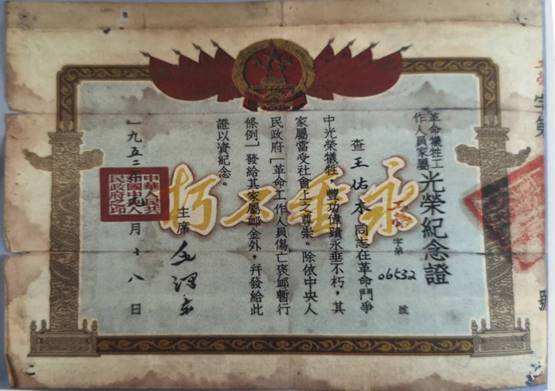 革命犧牲工作人員家屬光榮紀念證
字第06532號
查王佑木同志在革命鬥爭
中光榮犧牲，豐功偉績永垂不朽，其
家屬當受社會上之尊崇。除依中央人
民政府「革命工作人員傷亡褒卹暫行
條例」發給其家屬卹金外，幷發給此
證以資紀念。
主席 毛澤東
一九五二年 月十八日
永垂不朽
中華人民共和國中央人民政府之印
字第
號